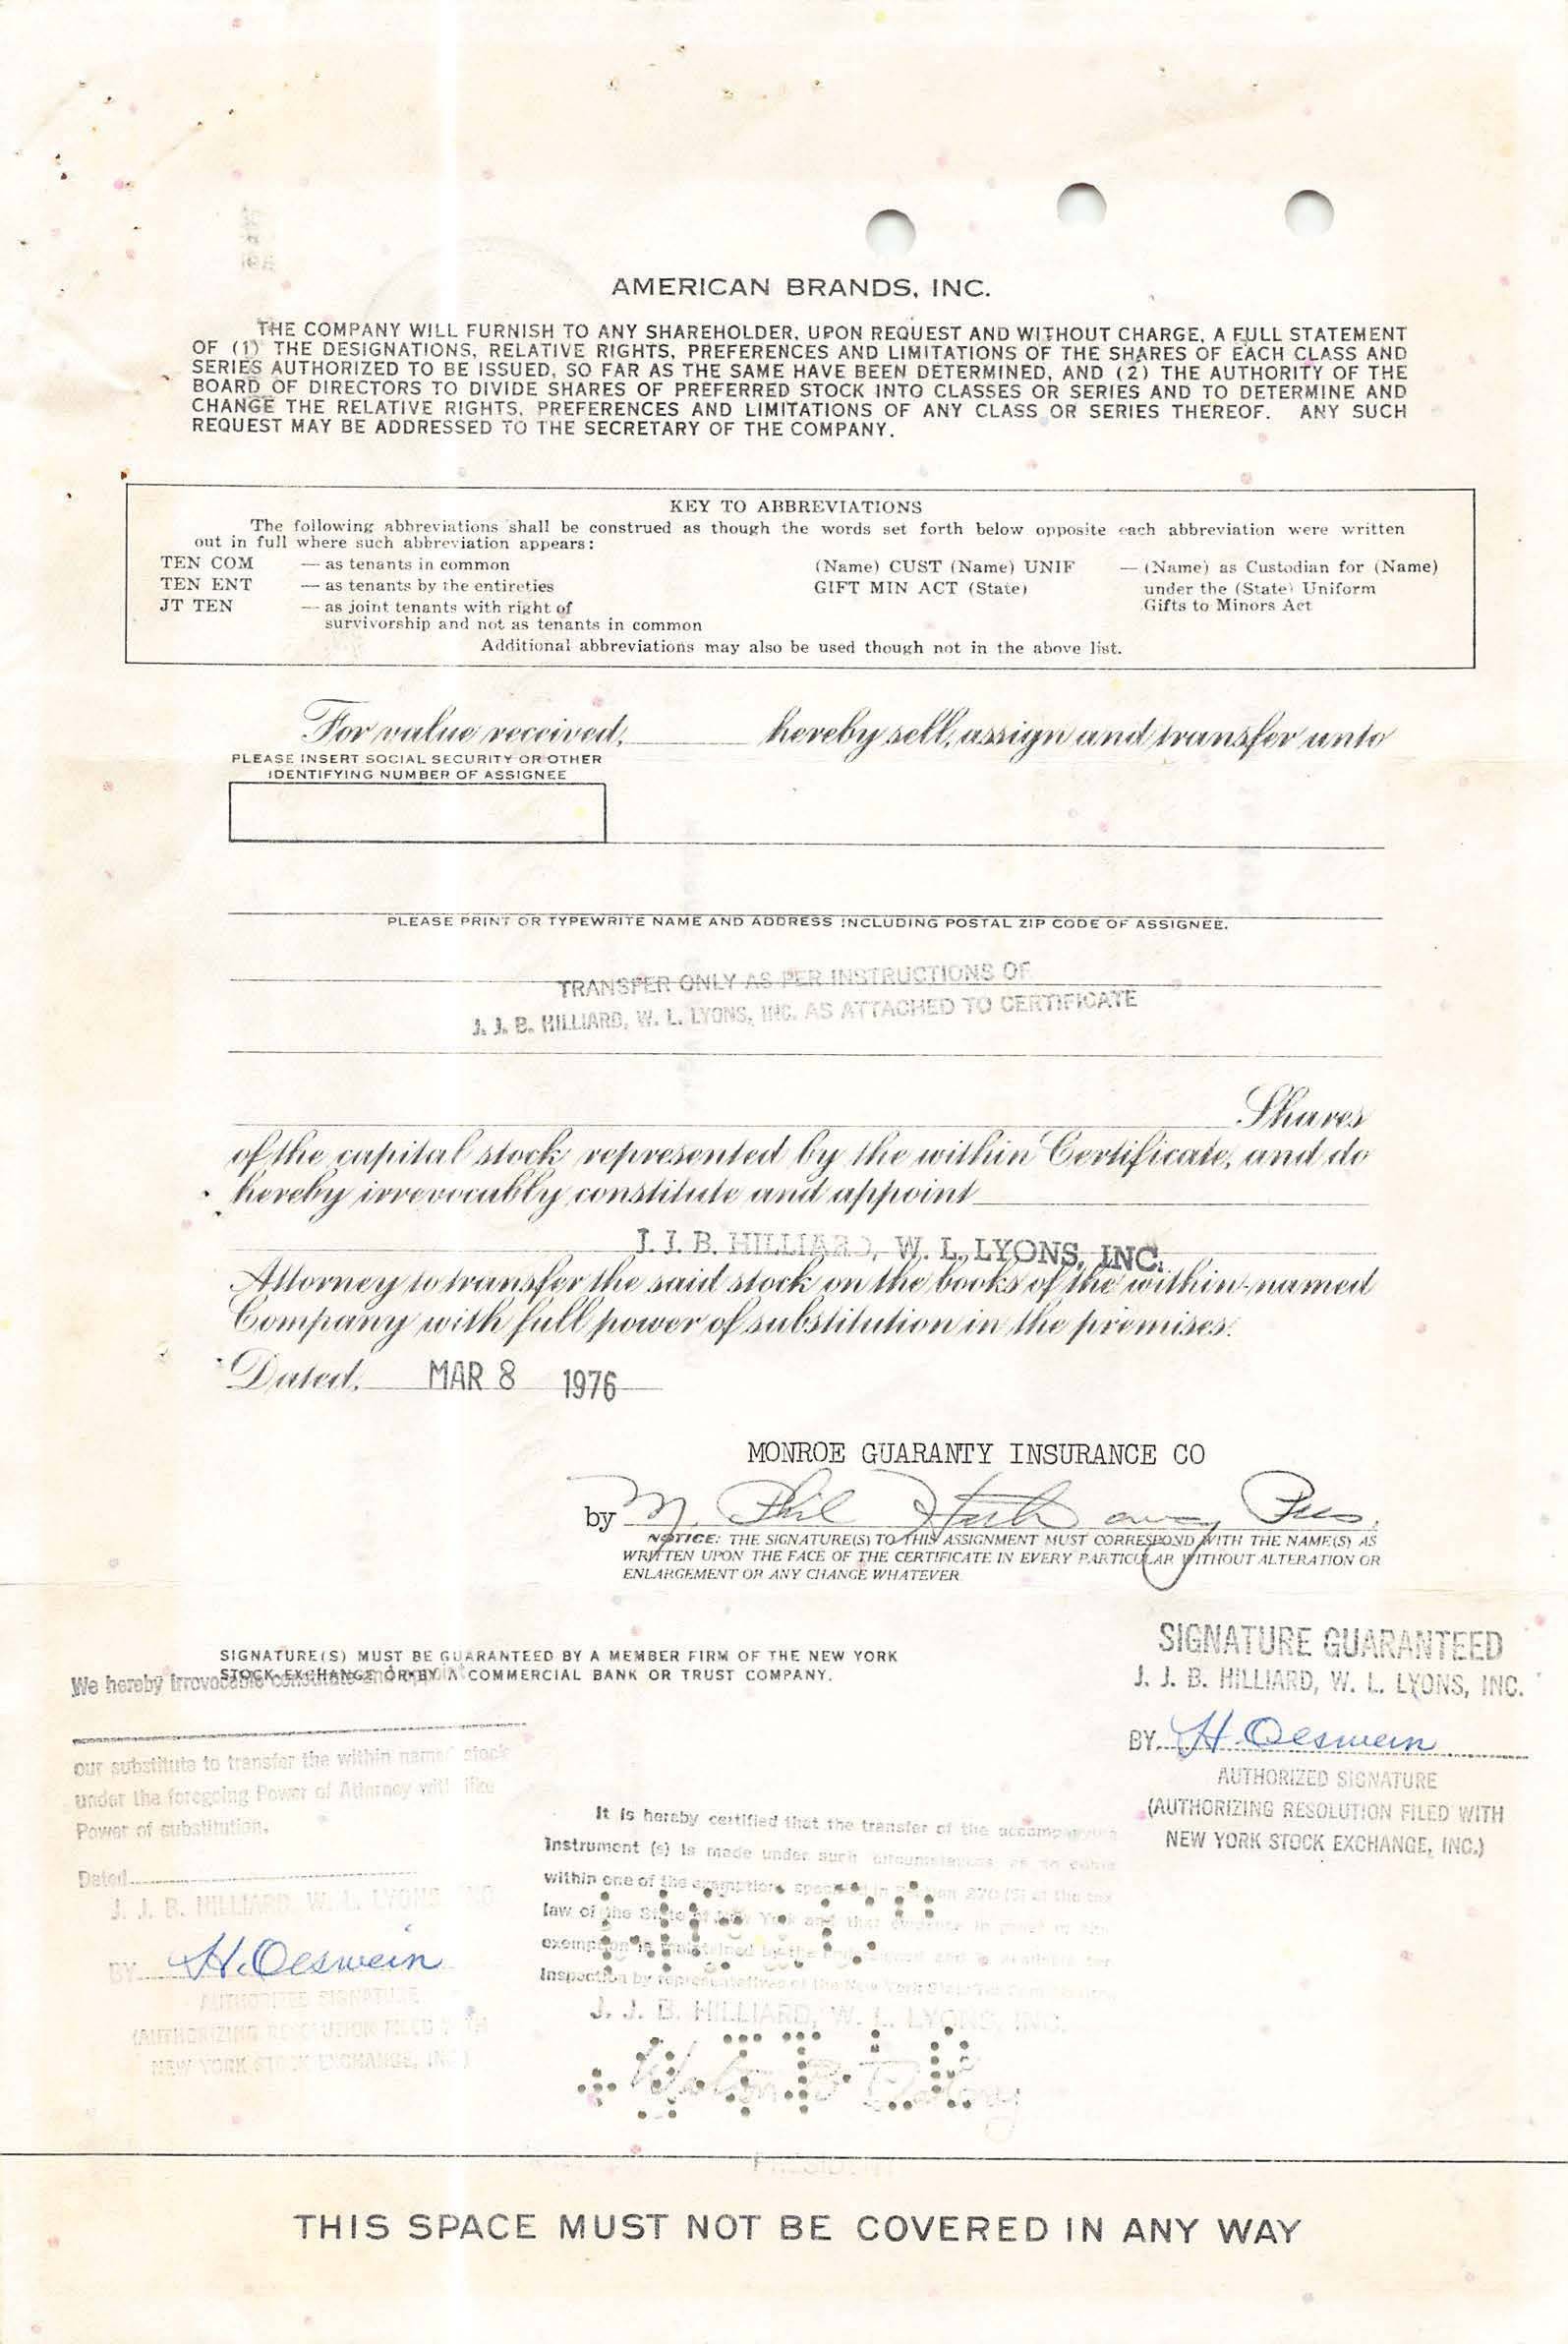 AMERICAN BRANDS, INC.
THE COMPANY WILL FURNISH TO ANY SHAREHOLDER, UPON REQUEST AND WITHOUT CHARGE, A FULL STATEMENT
OF (1) THE DESIGNATIONS, RELATIVE RIGHTS, PREFERENCES AND LIMITATIONS OF THE SHARES OF EACH CLASS AND
SERIES AUTHORIZED TO BE ISSUED, SO FAR AS THE SAME HAVE BEEN DETERMINED, AND (2) THE AUTHORITY OF THE
BOARD OF DIRECTORS TO DIVIDE SHARES OF PREFERRED STOCK INTO CLASSES OR SERIES AND TO DETERMINE AND
CHANGE THE RELATIVE RIGHTS, PREFERENCES AND LIMITATIONS OF ANY CLASS OR SERIES THEREOF. ANY SUCH
REQUEST MAY BE ADDRESSED TO THE SECRETARY OF THE COMPANY.
KEY TO ABBREVIATIONS
The following abbreviations shall be construed as though the words set forth below opposite each abbreviation were written
out in full where such abbreviation appears:
TEN COM — as tenants in common (Name) CUST (Name) UNIF — (Name) as Custodian for (Name)
TEN ENT — as tenants by the entireties GIFT MIN ACT (State) under the (State) Uniform
JT TEN — as joint tenants with right of Gifts to Minors Act
survivorship and not as tenants in common
Additional abbreviations may also be used though not in the above list.
For value received, hereby sell, assign and transfer unto
PLEASE INSERT SOCIAL SECURITY OR OTHER
IDENTIFYING NUMBER OF ASSIGNEE
PLEASE PRINT OR TYPEWRITE NAME AND ADDRESS INCLUDING POSTAL ZIP CODE OF ASSIGNEE.
TRANSFER ONLY AS PER INSTRUCTIONS OF
J. J. B. HILLIARD, W. L. LYONS, INC. AS ATTACHED TO CERTIFICATE
Shares
of the capital stock represented by the within Certificate, and do
hereby irrevocably constitute and appoint
J. J. B. HILLIARD, W. L. LYONS, INC.
Attorney to transfer the said stock on the books of the within-named
Company with full power of substitution in the premises.
Dated, MAR 8 1976
MONROE GUARANTY INSURANCE CO
by M. Phil Hathaway Pres.
NOTICE: THE SIGNATURE(S) TO THIS ASSIGNMENT MUST CORRESPOND WITH THE NAME(S) AS
WRITTEN UPON THE FACE OF THE CERTIFICATE IN EVERY PARTICULAR WITHOUT ALTERATION OR
ENLARGEMENT OR ANY CHANGE WHATEVER.
SIGNATURE(S) MUST BE GUARANTEED BY A MEMBER FIRM OF THE NEW YORK
STOCK EXCHANGE OR BY A COMMERCIAL BANK OR TRUST COMPANY.
SIGNATURE GUARANTEED
J. J. B. HILLIARD, W. L. LYONS, INC.
BY H. Oeswein
AUTHORIZED SIGNATURE
(AUTHORIZING RESOLUTION FILED WITH
NEW YORK STOCK EXCHANGE, INC.)
We hereby irrovocable constitute and appoint
our substitute to transfer the within named stock
under the foregoing Power of Attorney with like
Power of substitution.
Dated
J. J. B. HILLIARD, W. L. LYONS, INC.
BY H. Oeswein
AUTHORIZED SIGNATURE
(AUTHORIZING RESOLUTION FILED WITH
NEW YORK STOCK EXCHANGE, INC.)
It is hereby certified that the transfer of the accompanying
Instrument (s) is made under such circumstances as to come
within one of the exemptions specified in Section 270 (5) of the tax
law of the State of New York and that
Inspection by representatives of the New York State
J. J. B. HILLIARD, W. L. LYONS, INC.
THIS SPACE MUST NOT BE COVERED IN ANY WAY